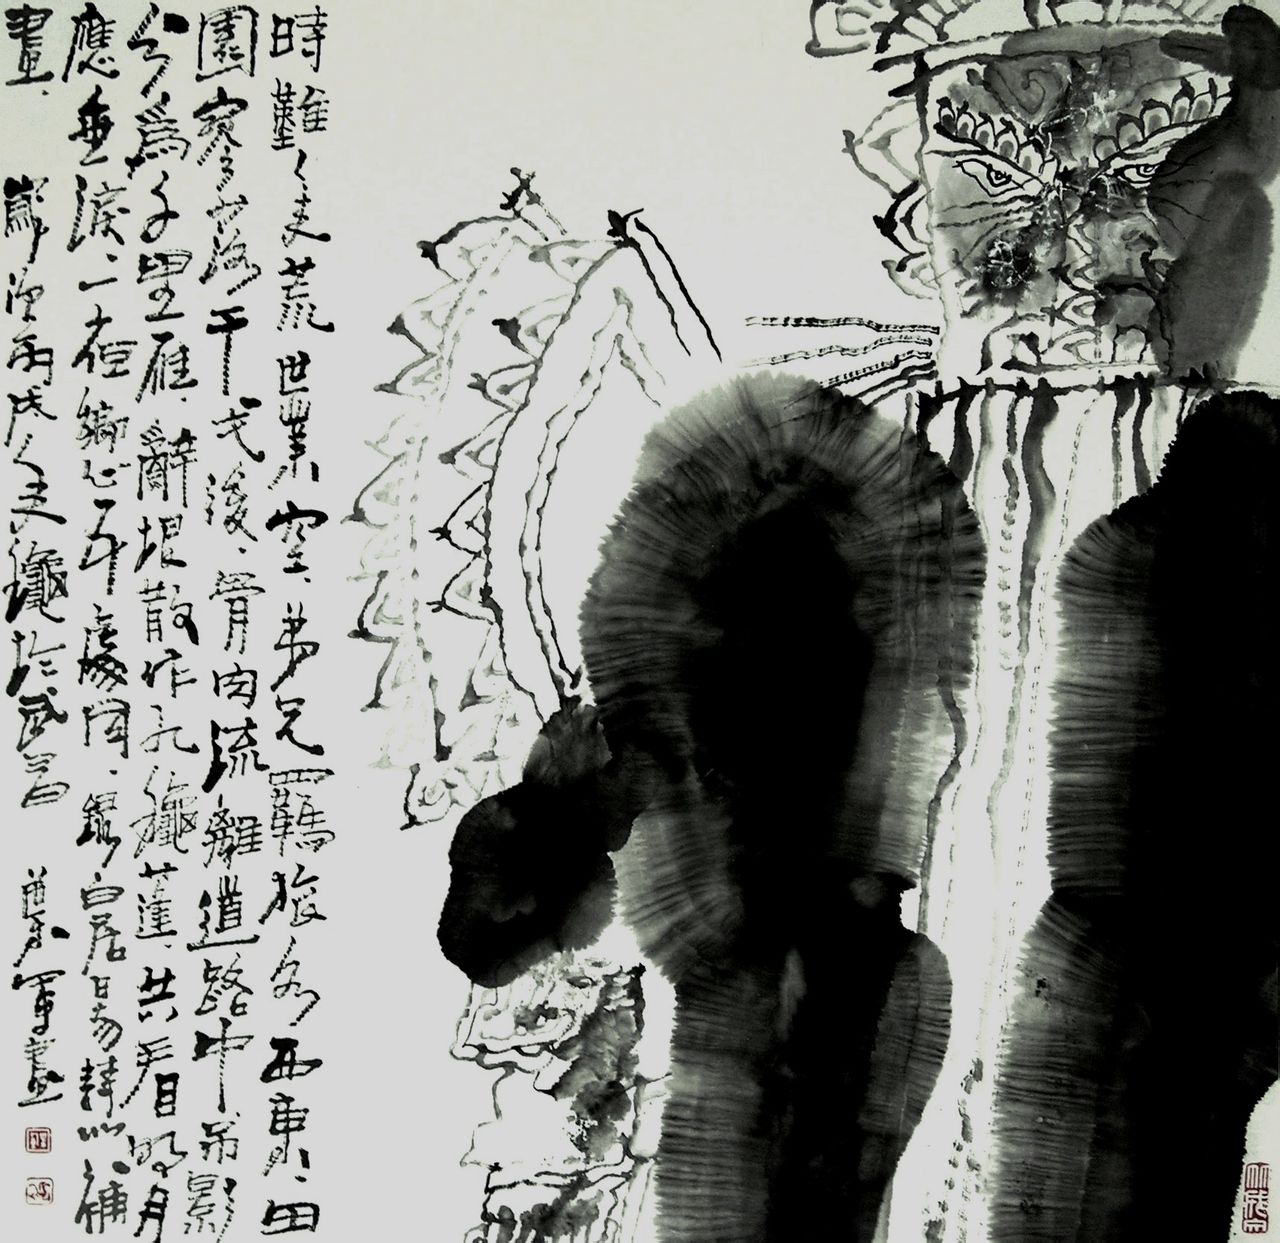 時難年荒世業空、弟兄羈旅各、西東、田
園寥落干戈後、骨肉流離道路中、吊影
分為千里雁、辭根散作九龝蓬、共看明月
應垂淚、一夜鄉心五處同、錄白居易詩以補
畫、歲丙戌年龝於武昌 軍畫